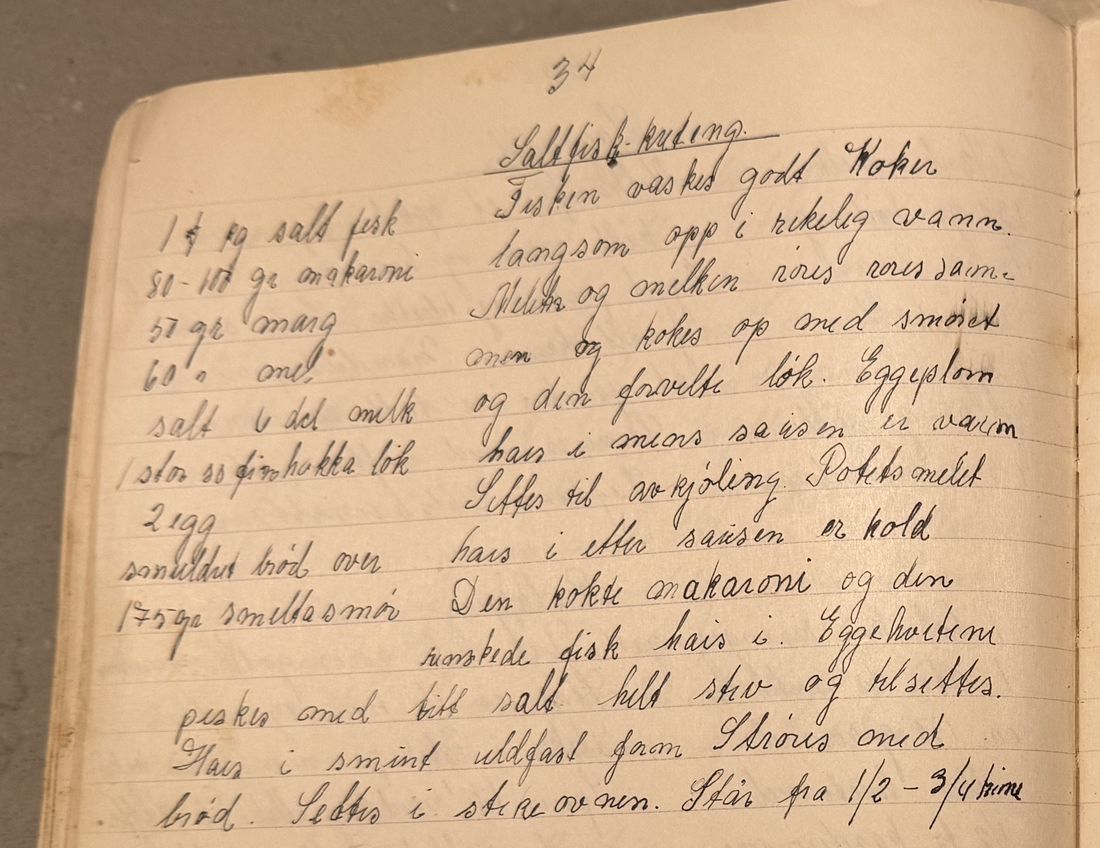 34
Saltfisk-kuteng.
1 kg salt fisk
80-100 gr makaroni
50 gr marg
60 " mel
salt 6 del melk
1 stor ss finhakka løk
2 egg
smuldret brød over
175 gr smelta smør
Fisken vaskes godt Koker
langsom opp i rikelig vann.
Melet og melken røres røres sam-
men og kokes op med smøret
og den forvelte løk. Eggeplom
haes i mens sausen er varm
Settes til avkjøling. Potetsmelet
haes i etter sausen er kold
Den kokte makaroni og den
renskede fisk haes i. Eggehvitene
piskes med litt salt helt stiv og tilsettes.
Haes i smint ildfast form Strøes med
brød. Settes i stekeovnen. Står fra 1/2 - 3/4 time